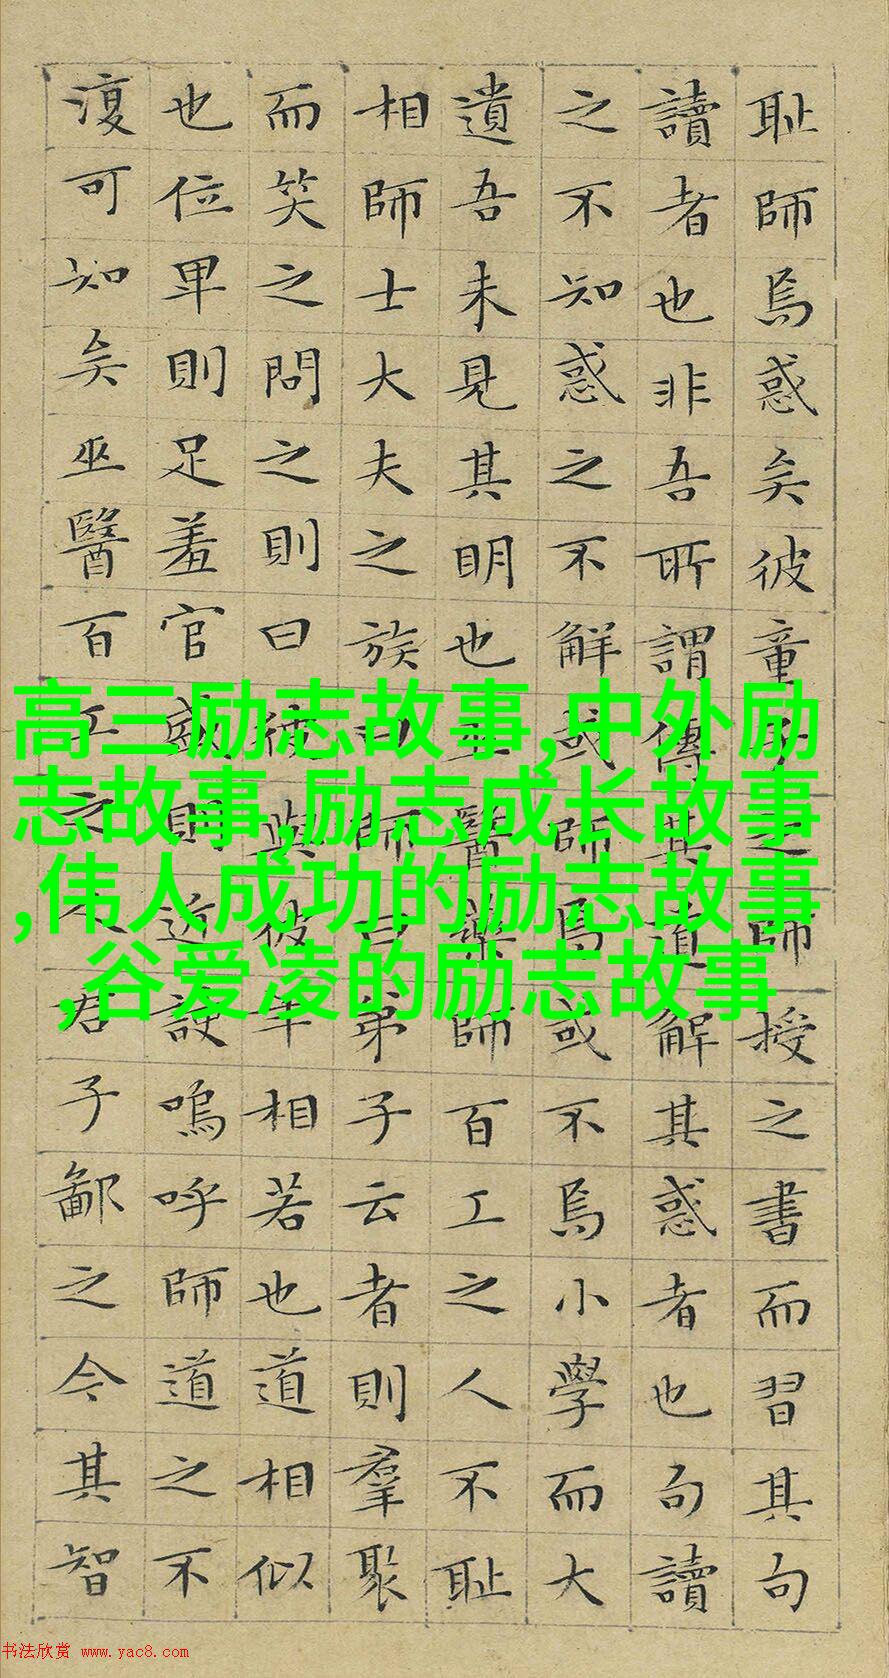 耻師焉惑矣彼童子之師授之書而習其句
讀者也非吾所謂傳其道解其惑者也句讀
之不知惑之不解或師焉或不焉小學而大
遺吾未見其明也巫醫藥師百工之人不耻
相師士大夫之族曰師曰弟子云者則羣聚
而笑之問之則曰彼與彼年相若也道相似
也位卑則足羞官盛則近諛嗚呼師道之不
復可知矣巫醫百工之人君子鄙之今其智
高三励志故事,中外励
志故事,励志成长故事
,伟人成功的励志故事
,谷爱凌的励志故事
书法欣赏 www.yac8.com